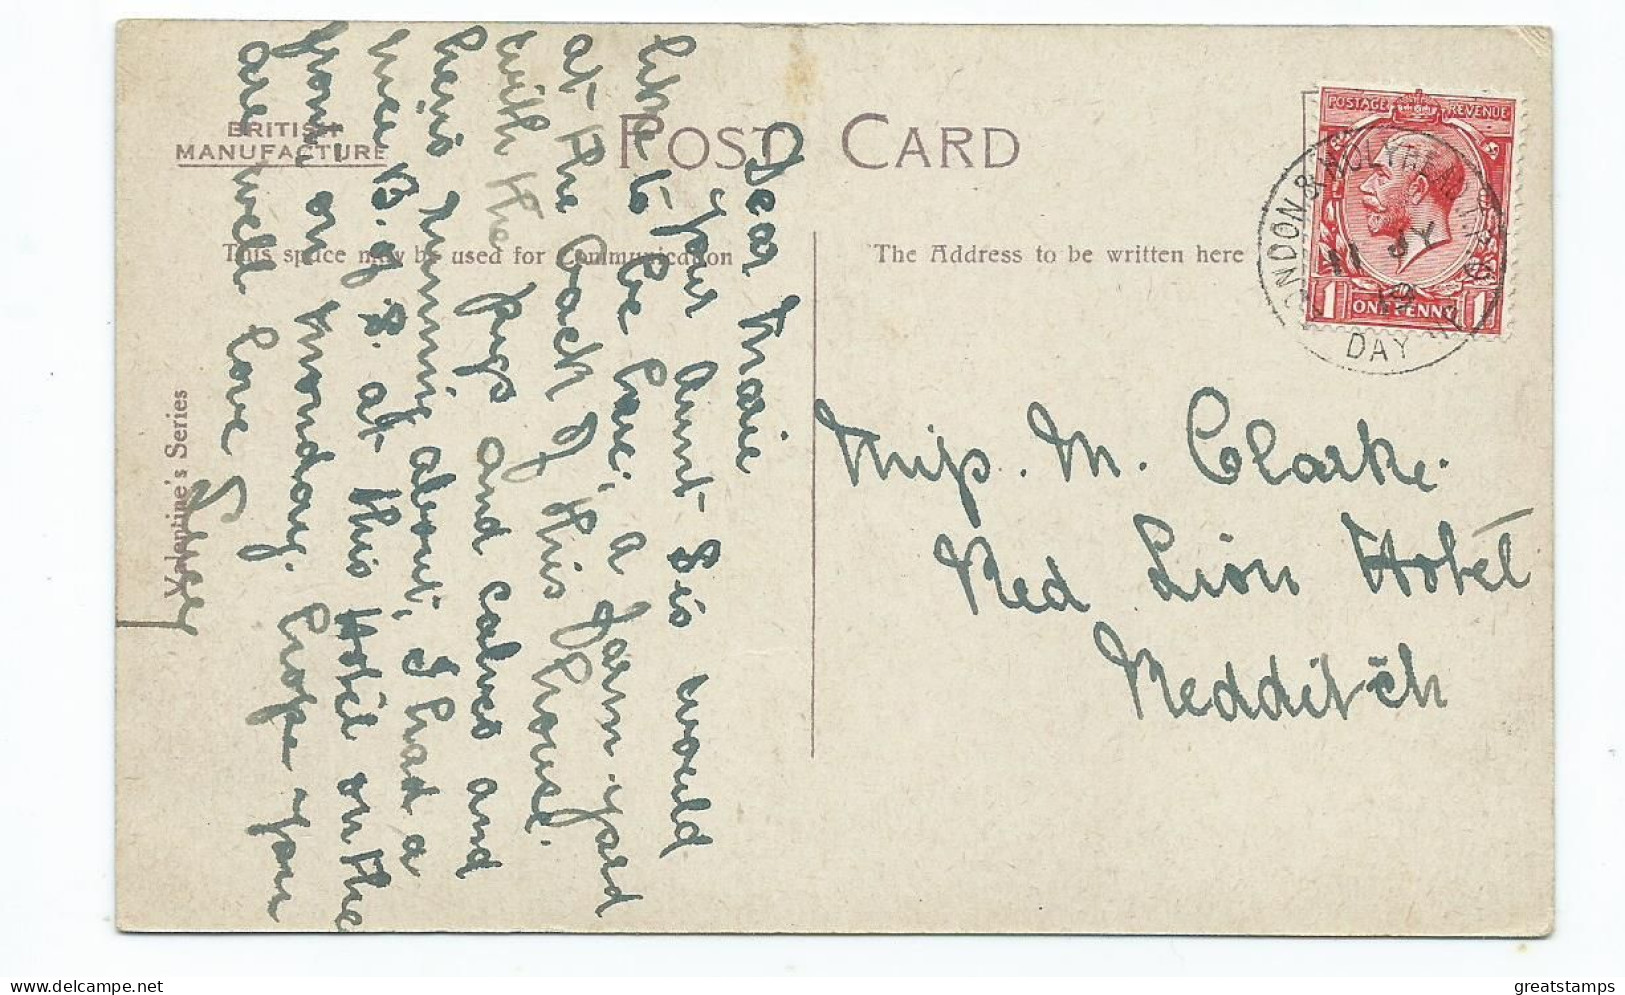 BRITISH
MANUFACTURE
POST CARD
This space may be used for Communication
The Address to be written here
Valentine's Series
POSTAGE REVENUE
1 ONE PENNY 1
LONDON & HOLYHEAD T.P.O.
11 JY
DAY
Miss. M. Clarke.
Red Lion Hotel
Redditch
Dear Marie
your Aunt Sis would
like to be here, a farm-yard
at the back of this house.
with the pigs and calves and
hens running about, I had a
nice B. of S. at this Hotel on the
on Monday. hope you
are well love
greatstamps